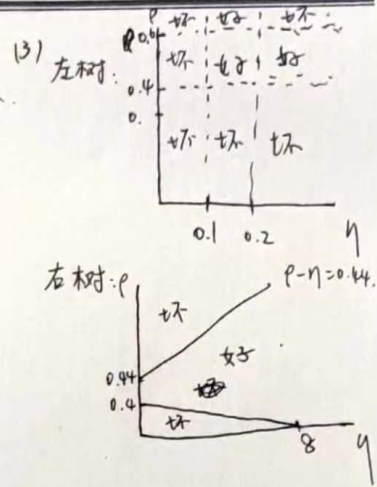 ρ 坏 好 坏
(3) 0.6
左树: 坏 好 好
0.4
0.
坏 坏 坏
0.1 0.2 η
右树:ρ ρ-η=0.44.
坏
好
0.44
0.4
坏
8 η